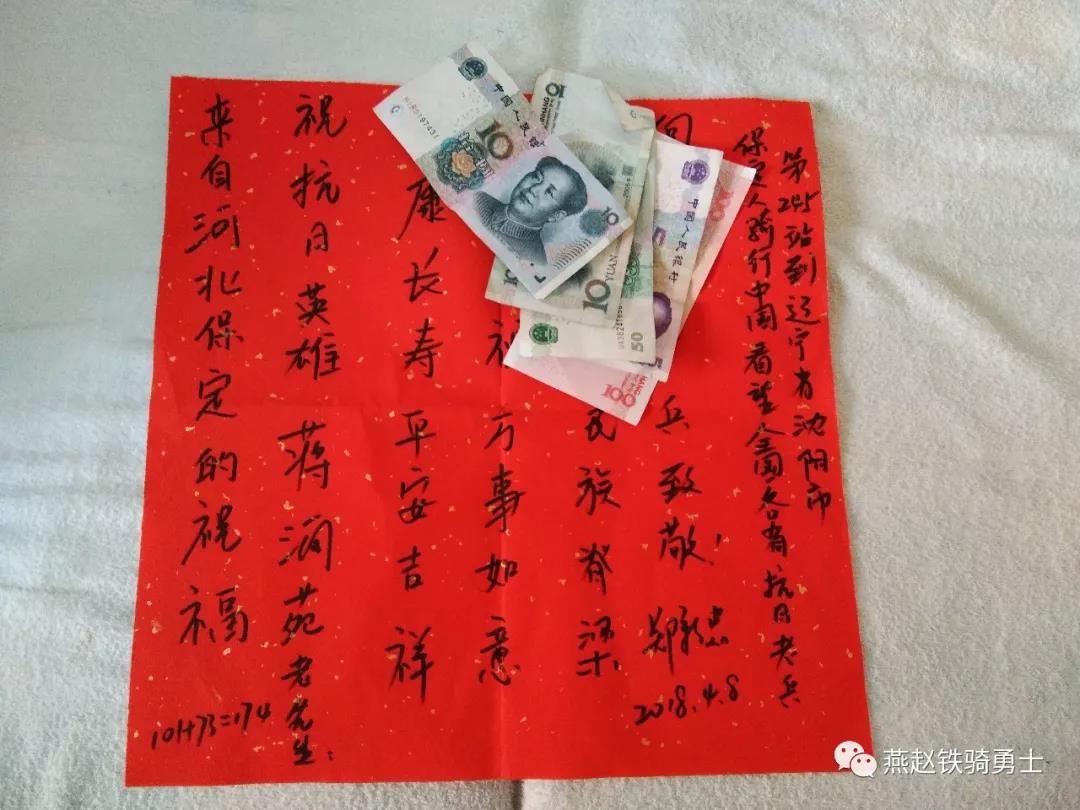 来自河北保定的祝福
祝抗日英雄蒋润苑老先生:
康长寿平安吉祥
万事如意
民族脊梁
向
兵致敬!
郑
2018.4.8
保定人骑行中国看望全国各省抗日老兵
第245站到辽宁省沈阳市
101+73=174
中国人民银
10
10
10
10
YUAN
50
中國人民銀行
100
100
燕赵铁骑勇士